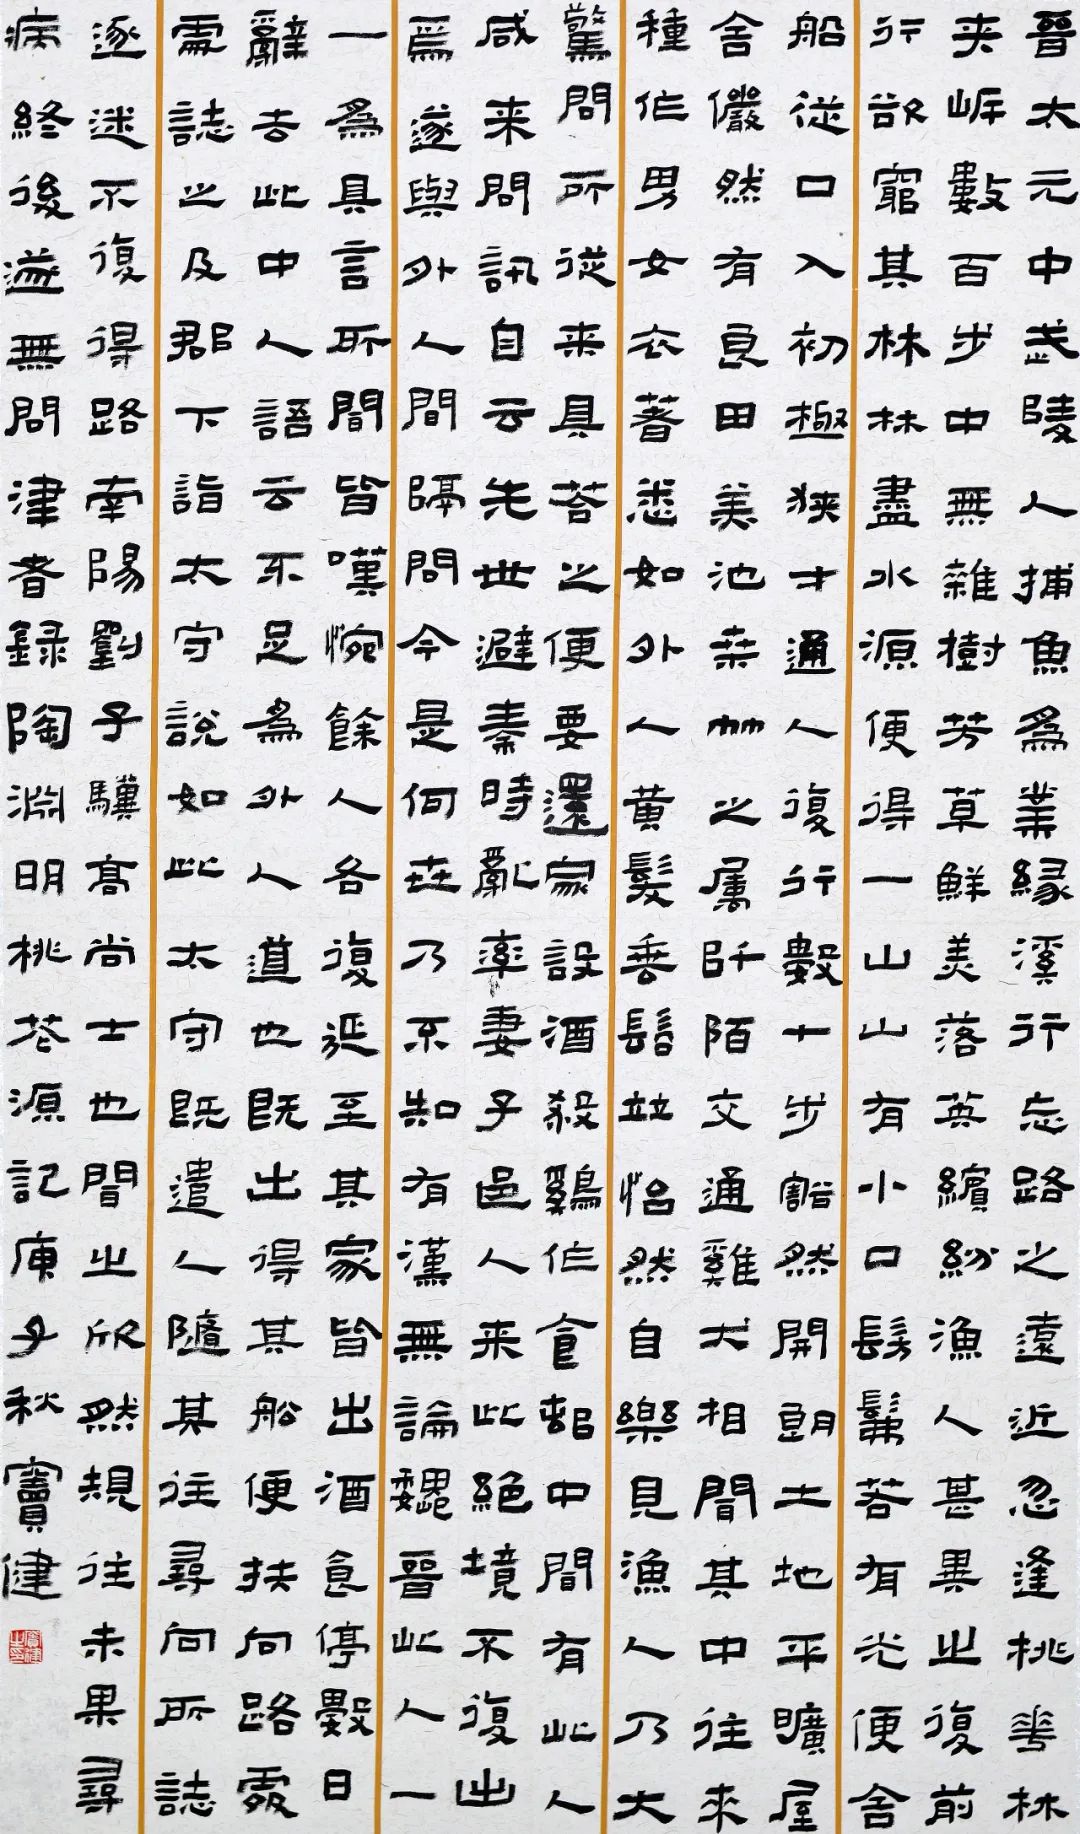 晉太元中武陵人捕魚為業緣溪行忘路之遠近忽逢桃華林
夾岸數百步中無雜樹芳草鮮美落英繽紛漁人甚異之復前
行欲窮其林林盡水源便得一山山有小口髣髴若有光便舍
船從口入初極狹才通人復行數十步豁然開朗土地平曠屋
舍儼然有良田美池桑竹之属阡陌交通雞犬相聞其中往來
種作男女衣著悉如外人黃髮垂髫竝怡然自樂見漁人乃大
驚問所從来具荅之便要還家設酒殺鷄作食邨中聞有此人
咸来問訊自云先世避秦時亂率妻子邑人来此絕境不復出
焉遂與外人間隔問今是何世乃不知有漢無論魏晉此人一
一為具言所聞皆嘆惋餘人各復延至其家皆出酒食停數日
辭去此中人語云不足為外人道也既出得其船便扶向路處
處誌之及郡下詣太守說如此太守既遣人隨其往尋向所誌
遂迷不復得路南陽劉子驥髙尚士也聞之欣然規往未果尋
病終後遂無問津者錄陶淵明桃花源記庚子秋竇健
竇健之印